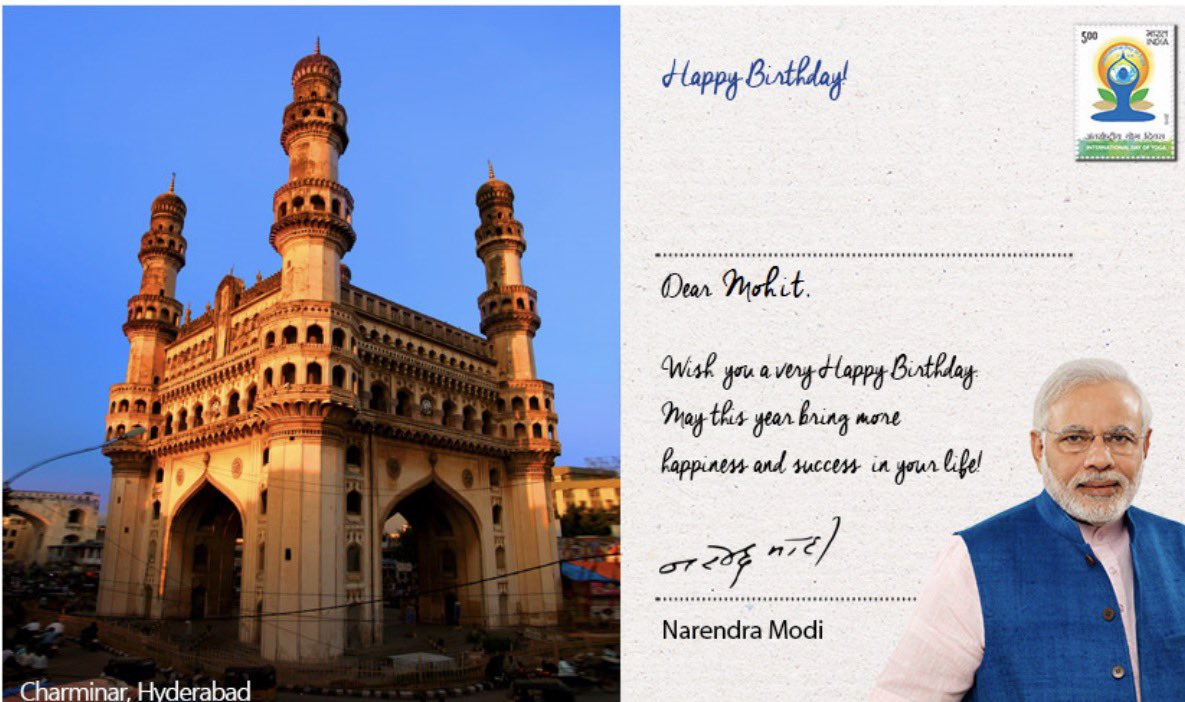 Happy Birthday!
5.00
भारत
INDIA
अंतर्राष्ट्रीय योग दिवस
INTERNATIONAL DAY OF YOGA
Dear Mohit.
Wish you a very Happy Birthday.
May this year bring more
happiness and success in your life!
नरेन्द्र मोदी
Narendra Modi
Charminar, Hyderabad